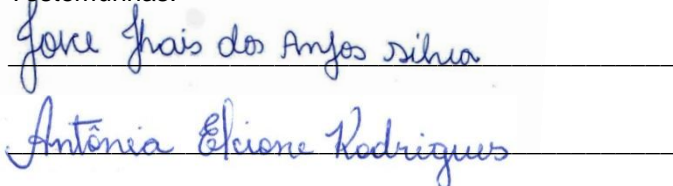 Testemunhas:
Joice Thais dos Anjos silva
Antônia Elcione Rodrigues